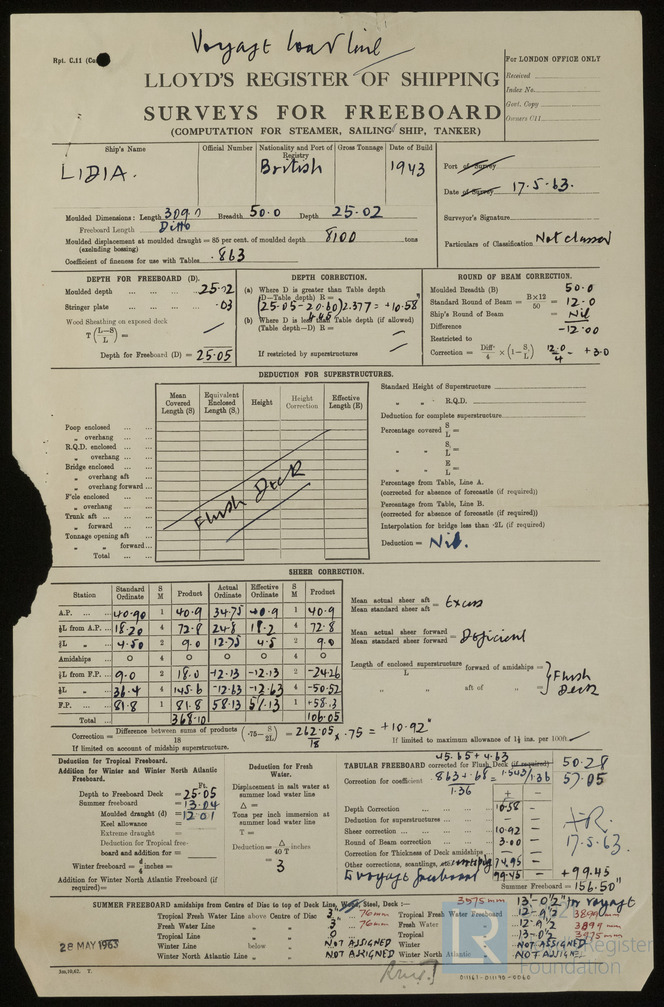 Voyage load line
Rpt. C.11
For LONDON OFFICE ONLY
LLOYD'S REGISTER OF SHIPPING
SURVEYS FOR FREEBOARD
(COMPUTATION FOR STEAMER, SAILING SHIP, TANKER)
Received
Index No.
Govt. Copy
Owners C11
Ship's Name Official Number Nationality and Port of Registry Gross Tonnage Date of Build
LIDIA. British 1943
Port of Survey
Date of Survey 17.5.63.
Surveyor's Signature
Particulars of Classification Not classed
Moulded Dimensions: Length 309.0 Breadth 50.0 Depth 25.02
Freeboard Length Ditto
Moulded displacement at moulded draught = 85 per cent. of moulded depth 8100 tons
(excluding bossing)
Coefficient of fineness for use with Tables .863
DEPTH FOR FREEBOARD (D).
Moulded depth 25.02
Stringer plate .03
Wood Sheathing on exposed deck
T (L-S/L) =
Depth for Freeboard (D) = 25.05
DEPTH CORRECTION.
(a) Where D is greater than Table depth
(D-Table depth) R =
(25.05-20.60)2.377 = +10.58"
(b) Where D is less than Table depth (if allowed)
(Table depth-D) R =
If restricted by superstructures
ROUND OF BEAM CORRECTION.
Moulded Breadth (B) 50.0
Standard Round of Beam = B×12/50 = 12.0
Ship's Round of Beam = Nil
Difference -12.00
Restricted to
Correction = Diff/4 × (1-S/L) 12.0/4 = +3.0
DEDUCTION FOR SUPERSTRUCTURES.
Mean Covered Length (S) Equivalent Enclosed Length (S₁) Height Height Correction Effective Length (E)
Poop enclosed
„ overhang
R.Q.D. enclosed
„ overhang
Bridge enclosed
„ overhang aft
„ overhang forward
F'cle enclosed
„ overhang
Trunk aft
„ forward
Tonnage opening aft
„ „ forward
Total
Flush Deck
Standard Height of Superstructure
„ „ R.Q.D.
Deduction for complete superstructure
Percentage covered S/L =
„ „ S₁/L =
„ „ E/L =
Percentage from Table, Line A.
(corrected for absence of forecastle (if required))
Percentage from Table, Line B.
(corrected for absence of forecastle (if required))
Interpolation for bridge less than ·2L (if required)
Deduction = Nil.
SHEER CORRECTION.
Station Standard Ordinate S M Product Actual Ordinate Effective Ordinate S M Product
A.P. 40.90 1 40.9 34.75 40.9 1 40.9
⅙L from A.P. 18.20 4 72.8 24.8 18.2 4 72.8
⅓L „ 4.50 2 9.0 12.75 4.5 2 9.0
Amidships 0 4 0 0 0 4 0
⅓L from F.P. 9.0 2 18.0 -12.13 -12.13 2 -24.26
⅙L „ 36.4 4 145.6 -12.63 -12.63 4 -50.52
F.P. 81.8 1 81.8 58.13 1 +58.13
Total 368.10 106.05
Mean actual sheer aft
Mean standard sheer aft = Excess
Mean actual sheer forward
Mean standard sheer forward = Deficient
Length of enclosed superstructure forward of amidships =
L
„ „ aft of „ = Flush Deck
Correction = Difference between sums of products/18 (·75-S/2L) = 262.05/18 × .75 = +10.92"
If limited on account of midship superstructure.
If limited to maximum allowance of 1½ ins. per 100ft.
Deduction for Tropical Freeboard.
Addition for Winter and Winter North Atlantic Freeboard.
Ft.
Depth to Freeboard Deck = 25.05
Summer freeboard = 13.04
Moulded draught (d) = 12.01
Keel allowance
Extreme draught
Deduction for Tropical freeboard and addition for
Winter freeboard = d/4 inches =
Addition for Winter North Atlantic Freeboard (if required)=
Deduction for Fresh Water.
Displacement in salt water at summer load water line
Δ =
Tons per inch immersion at summer load water line
T =
Deduction = Δ/40 T inches
= 3
45.65 + 4.63
TABULAR FREEBOARD corrected for Flush Deck (if required) 50.28
Correction for coefficient .863+.68/1.36 = 1.543/1.36 57.05
+ -
Depth Correction 10.58
Deduction for superstructures
Sheer correction 10.92
Round of Beam correction 3.00
Correction for Thickness of Deck amidships
Other corrections, scantlings, etc. 74.95
To voyage freeboard 99.45
+99.45
Summer Freeboard = 156.50"
17.5.63.
SUMMER FREEBOARD amidships from Centre of Disc to top of Deck Line, Wood, Steel, Deck:— 3975mm 13'-0½" for voyage
Tropical Fresh Water Line above Centre of Disc 3" 76mm
Fresh Water Line „ „ 3" 76mm
Tropical Line „ „ 0
Winter Line below „ NOT ASSIGNED
Winter North Atlantic Line „ „ NOT ASSIGNED
Tropical Fresh Water Freeboard 12'-9½" 3899
Fresh Water „ 12'-9½ 3899mm
Tropical „ 13'-0½ 3975mm
Winter „ NOT ASSIGNED
Winter North Atlantic „ NOT ASSIGNED
28 MAY 1963
3m,10,62. T.
Lloyd's Register
Foundation
011161-011170-0060